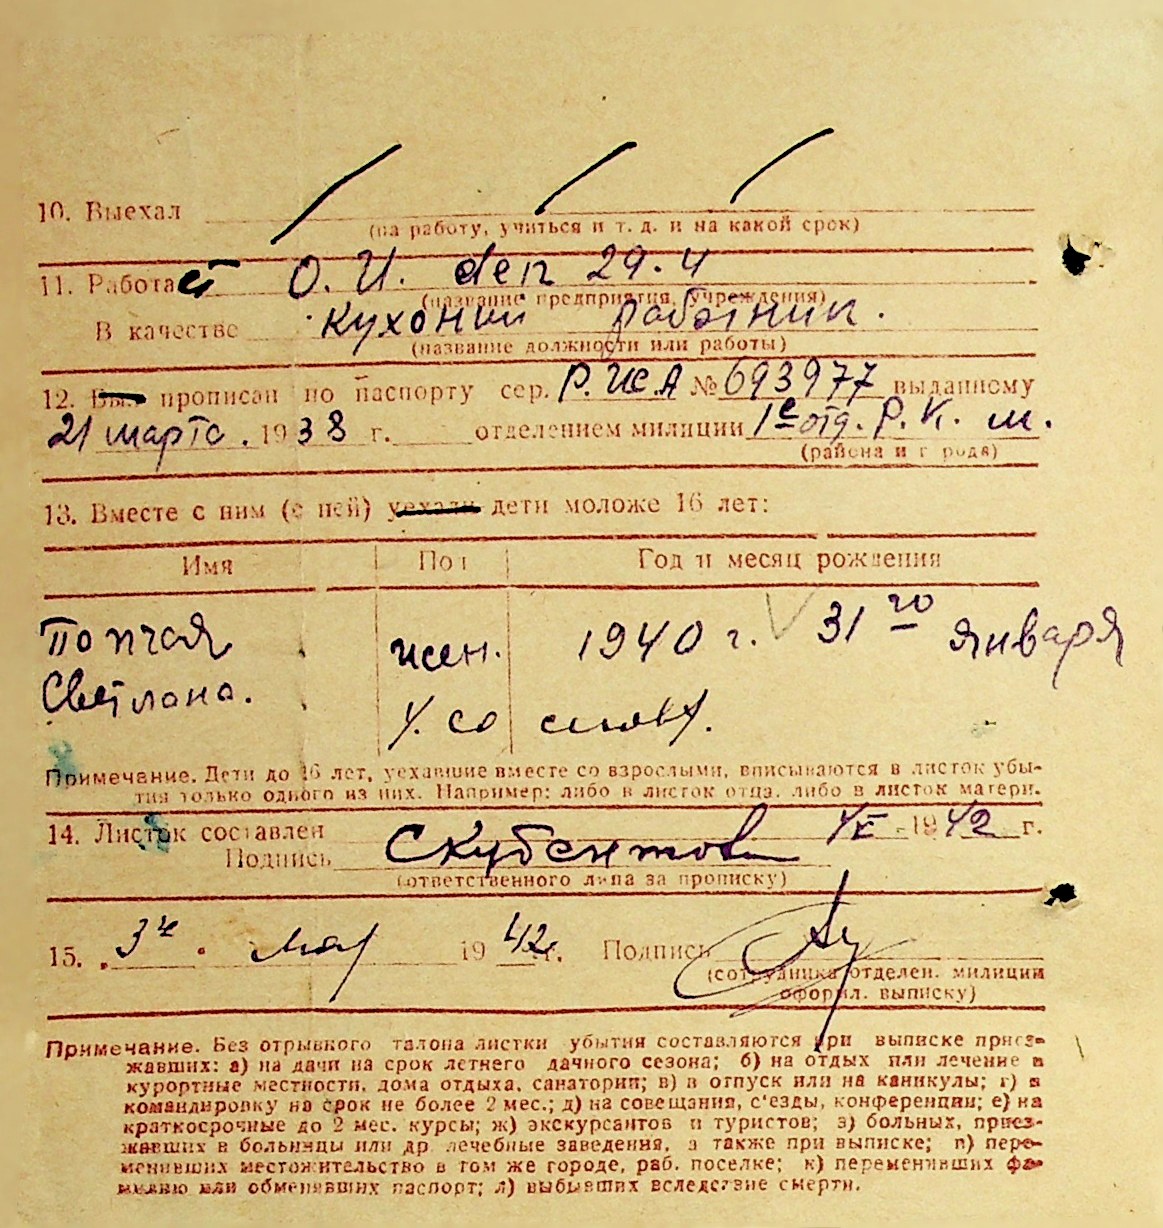 10. Выехал
(на работу, учиться и т. д. и на какой срок)
11. Работает О. И. den 29.4
(название предприятия, учреждения)
В качестве кухонный работник.
(название должности или работы)
12. Был прописан по паспорту сер. Р. № 693977 выданному
21 марта. 1938 г. отделением милиции 1е отд. Р. К. м.
(района и города)
13. Вместе с ним (с ней) уехали дети моложе 16 лет:
Имя Пол Год и месяц рождения
жен. 1940 г. 31го января
Светлана.
со слов
Примечание. Дети до 16 лет, уехавшие вместе со взрослыми, вписываются в листок убы-
тия только одного из них. Например: либо в листок отца, либо в листок матери.
14. Листок составлен 1942 г.
Подпись
(ответственного лица за прописку)
15. 3 мая 1942 г. Подпись
(сотрудника отделен. милиции
оформл. выписку)
Примечание. Без отрывного талона листки убытия составляются при выписке приез-
жавших: а) на дачи на срок летнего дачного сезона; б) на отдых или лечение в
курортные местности, дома отдыха, санатории; в) в отпуск или на каникулы; г) в
командировку на срок не более 2 мес.; д) на совещания, с'езды, конференции; е) на
краткосрочные до 2 мес. курсы; ж) экскурсантов и туристов; з) больных, приез-
жавших в больницы или др. лечебные заведения, а также при выписке; и) пере-
менивших местожительство в том же городе, раб. поселке; к) переменивших фа-
милию или обменявших паспорт; л) выбывших вследствие смерти.